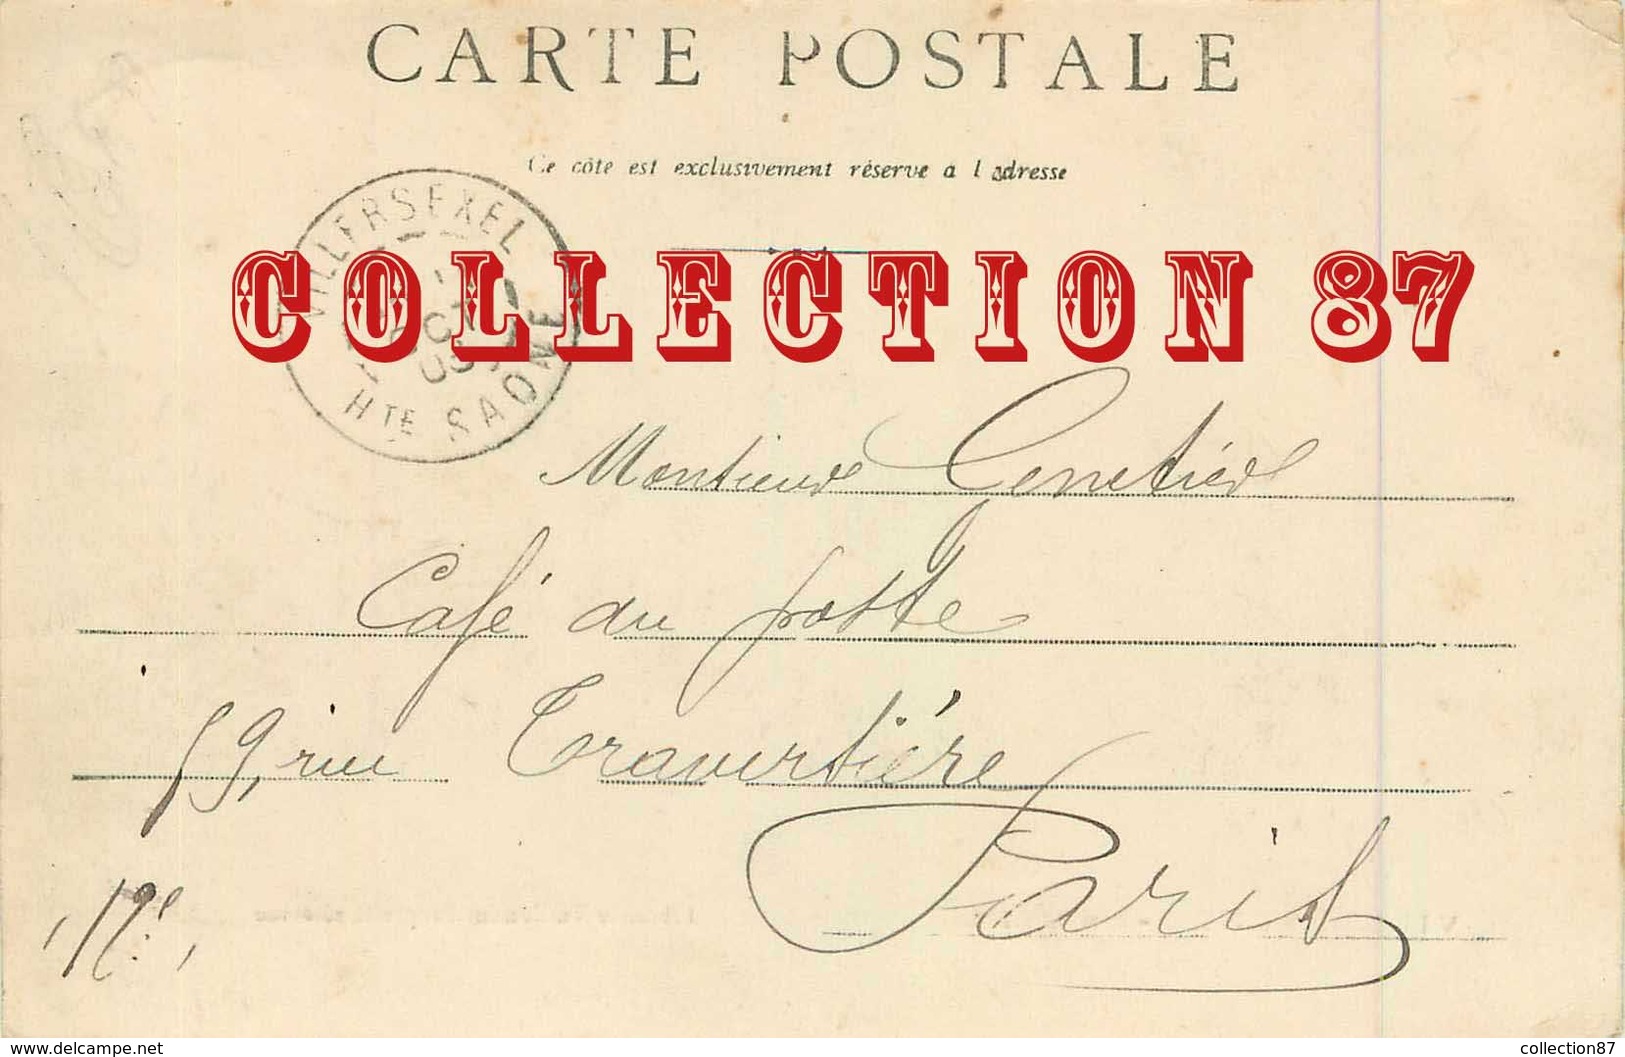 CARTE POSTALE
Ce côté est exclusivement réservé à l'adresse
VILLERSEXEL
HTE SAONE
COLLECTION 87
Monsieur Genetier
Café du poste
59, rue Traversière
Paris
12e
www.delcampe.net
collection87